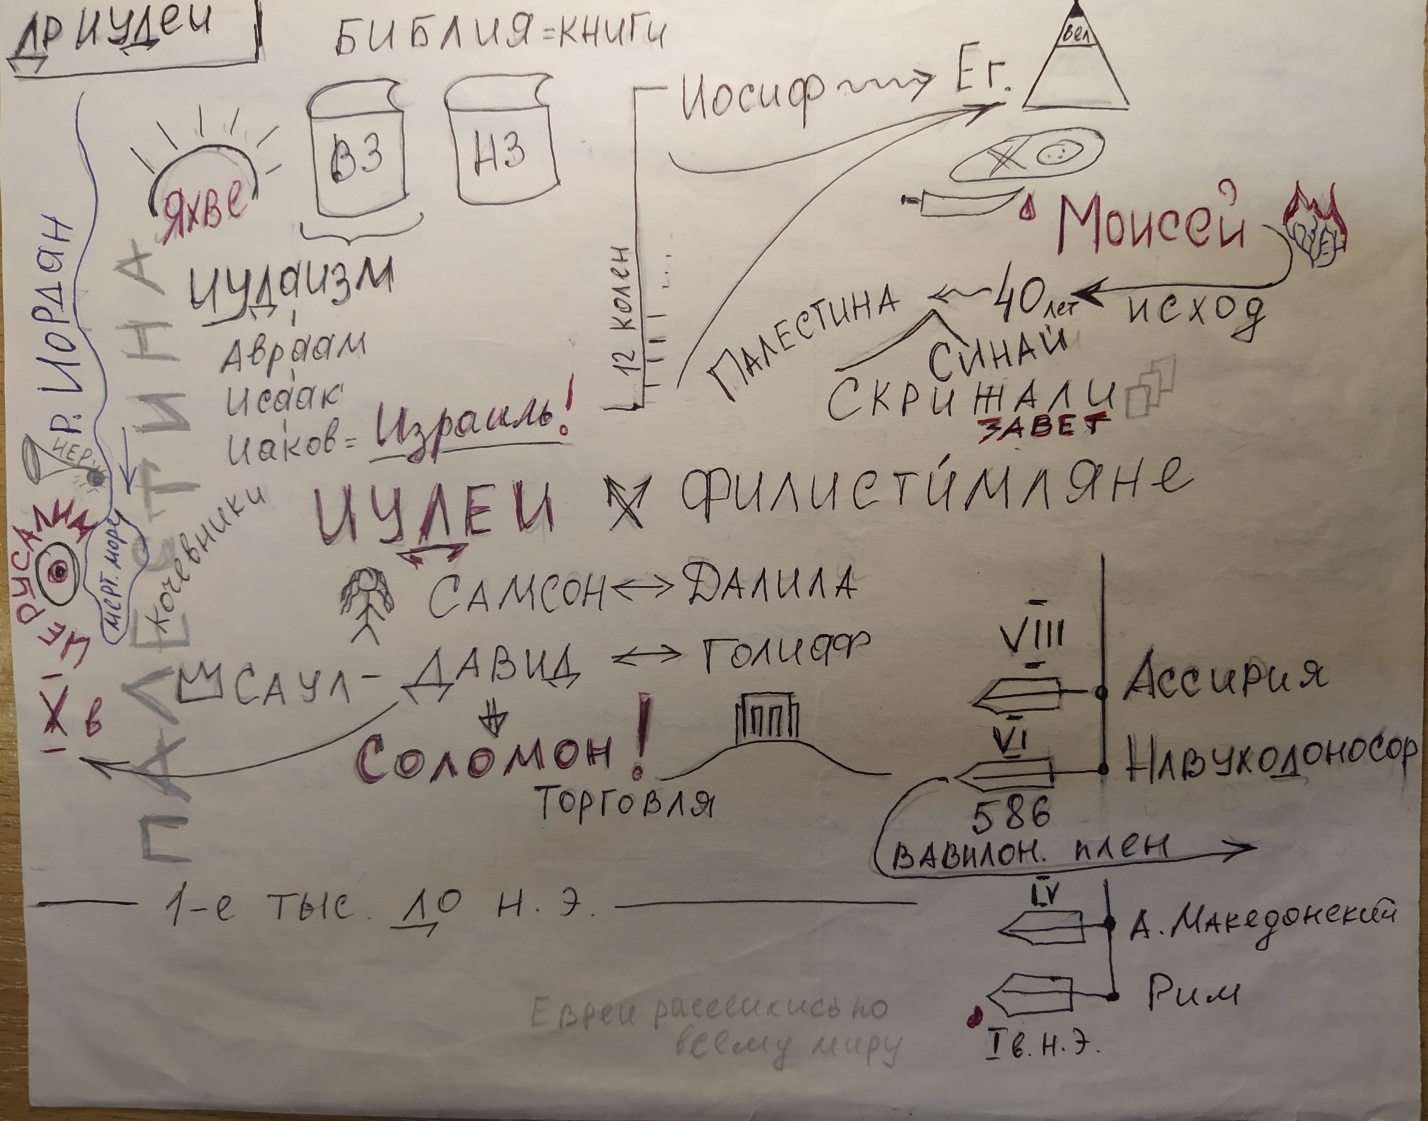 ДР ИУДЕИ
БИБЛИЯ = КНИГИ
ВЗ
НЗ
ЯХВЕ
ИУДАИЗМ
Авраам
Исаак
Иаков = Израиль!
12 КОЛЕН
...
Иосиф → Ег.
ВЕЛ
МОИСЕЙ
ИСХОД
40 лет
СИНАЙ
ПАЛЕСТИНА
СКРИЖАЛИ
ЗАВЕТ
Р. ИОРДАН
ПАЛЕСТИНА
кочевники
МЕРТ. МОРЕ
X в
ИУДЕИ
ФИЛИСТИ́МЛЯНЕ
САМСОН ↔ ДАЛИЛА
САУЛ - ДАВИД ↔ ГОЛИАФ
СОЛОМОН!
ТОРГОВЛЯ
VIII
АССИРИЯ
VI
НАВУХОДОНОСОР
586
ВАВИЛОН. ПЛЕН
1-е тыс. до н. э.
IV
А. МАКЕДОНСКИЙ
РИМ
I в. н. э.
Евреи расселились по
всему миру